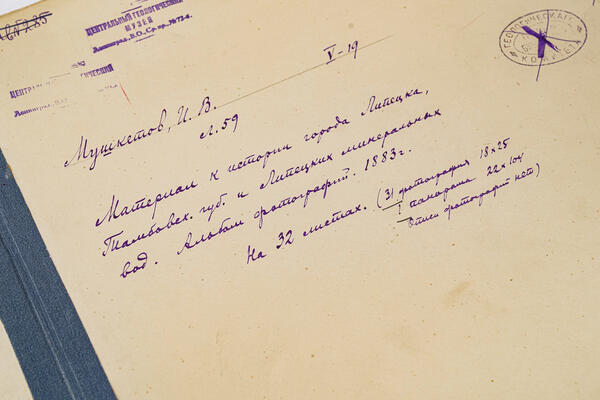 ЦЕНТРАЛЬНЫЙ ГЕОЛОГИЧЕСКИЙ
МУЗЕЙ
Ленинград, В.О., Ср. пр., № 72-а.
ГЕОЛОГИЧЕСКАГО
КОМИТЕТА
V-19
Мушкетов, И. В.
Л. 59
Материал к истории города Липецка,
Тамбовск. губ. и Липецких минеральных
вод. Альбом фотографий. 1883 г.
На 32 листах. (31 фотография 18×25
1 панорама 22×104
Описи фотографий нет)